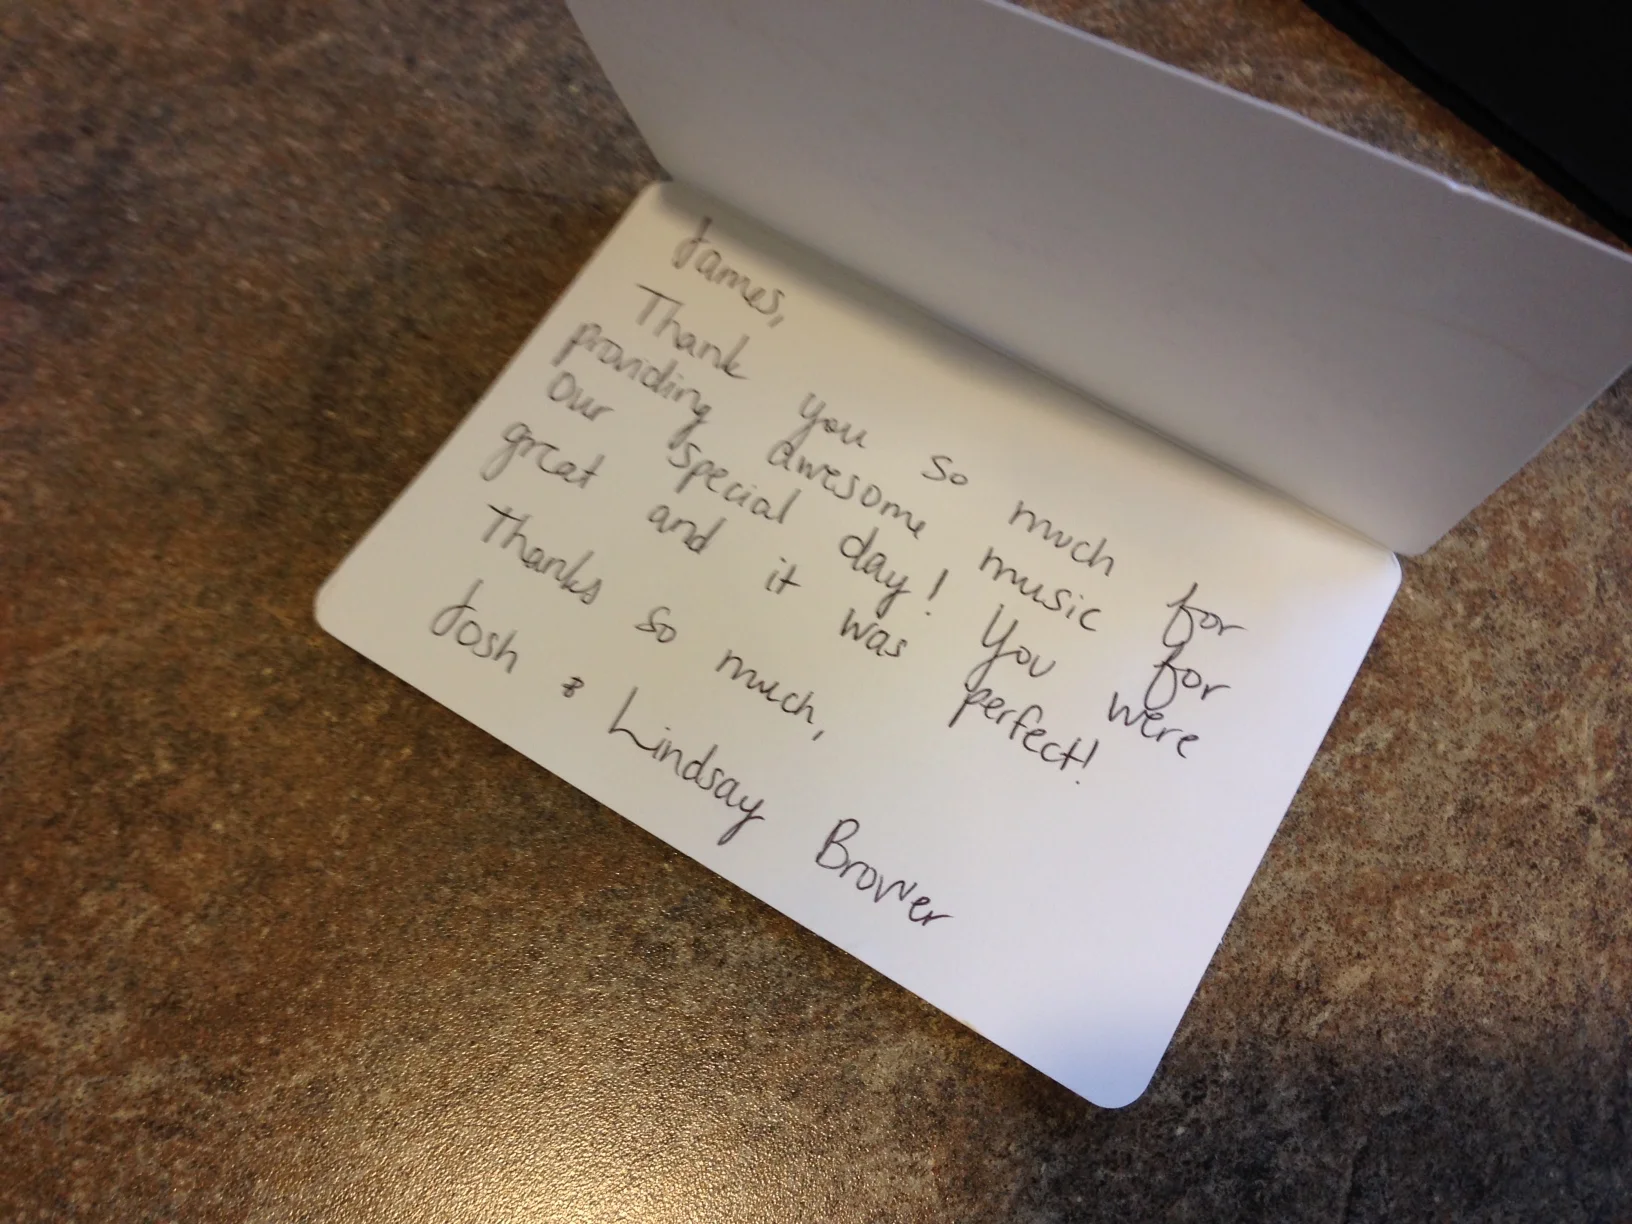 James,
Thank you so much for
providing awesome music for
our special day! You were
great and it was perfect!
Thanks so much,
Josh & Lindsay Brower